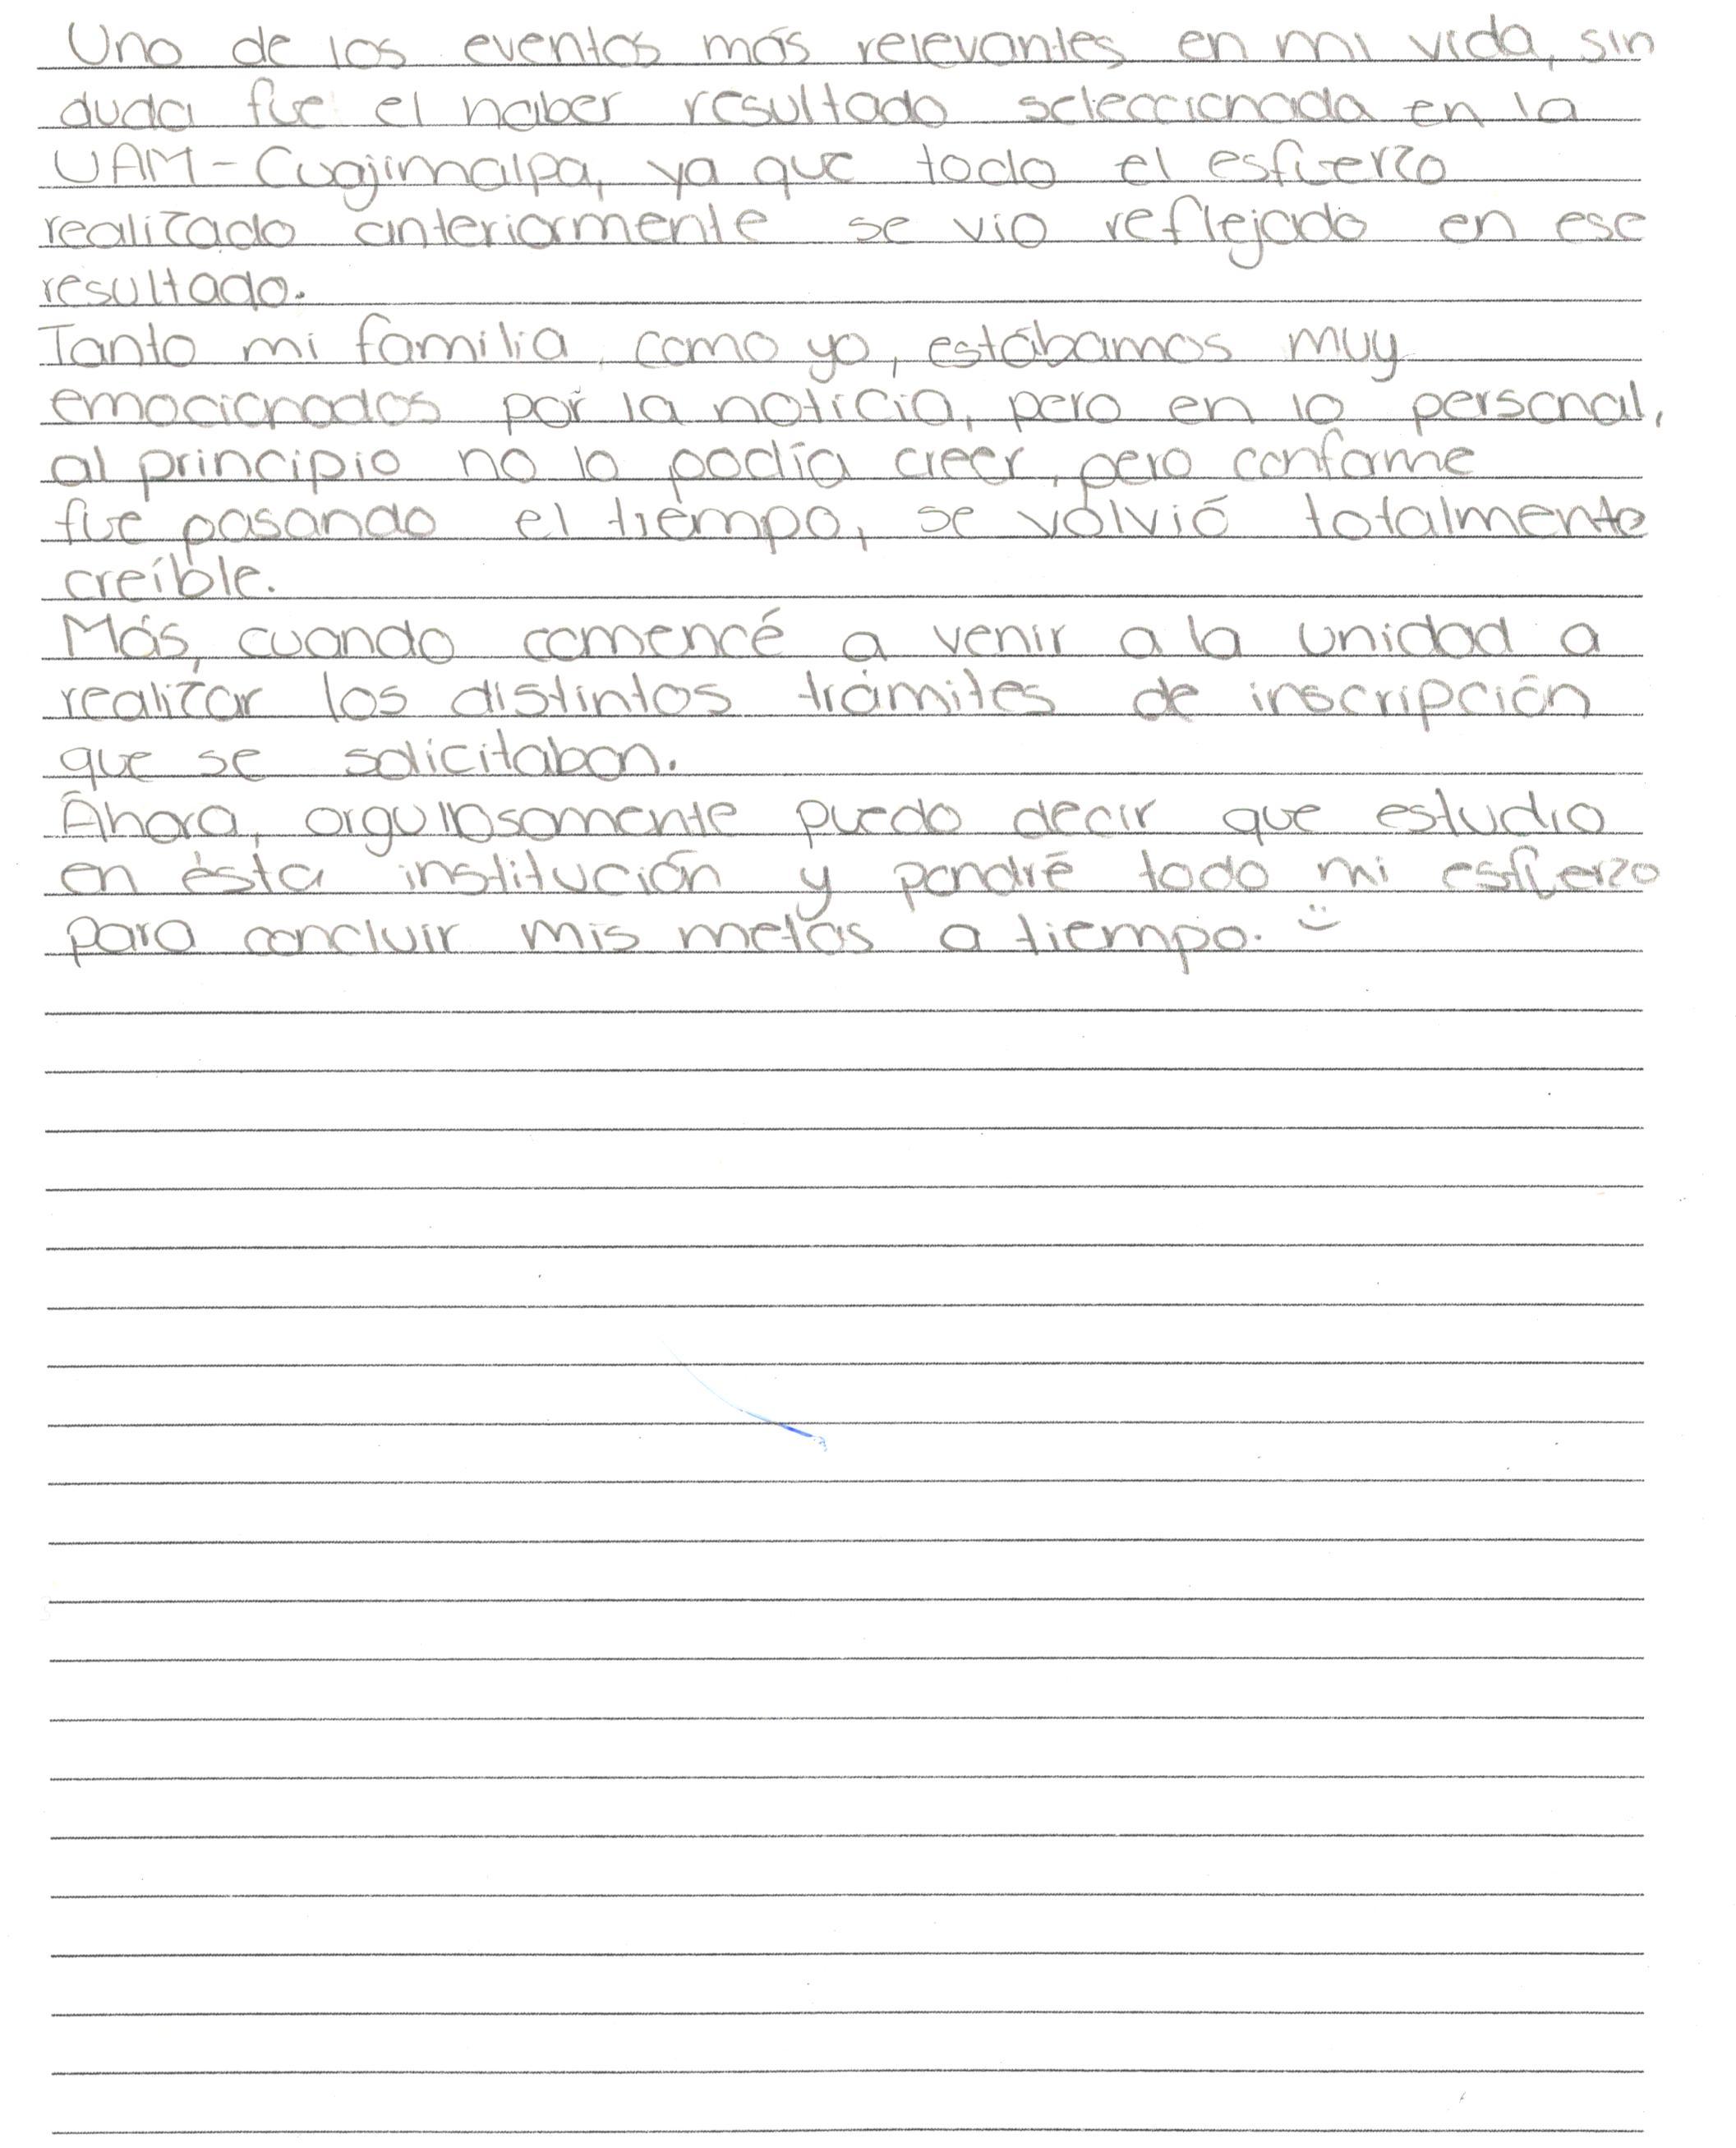 Uno de los eventos más relevantes en mi vida, sin
duda fue el haber resultado seleccionada en la
UAM-Cuajimalpa, ya que todo el esfuerzo
realizado anteriormente se vio reflejado en ese
resultado.
Tanto mi familia, como yo, estábamos muy
emocionados por la noticia, pero en lo personal,
al principio no lo podía creer, pero conforme
fue pasando el tiempo, se volvió totalmente
creíble.
Más, cuando comencé a venir a la unidad a
realizar los distintos trámites de inscripción
que se solicitaban.
Ahora, orgullosamente puedo decir que estudio
en ésta institución y pondré todo mi esfuerzo
para concluir mis metas a tiempo. :)